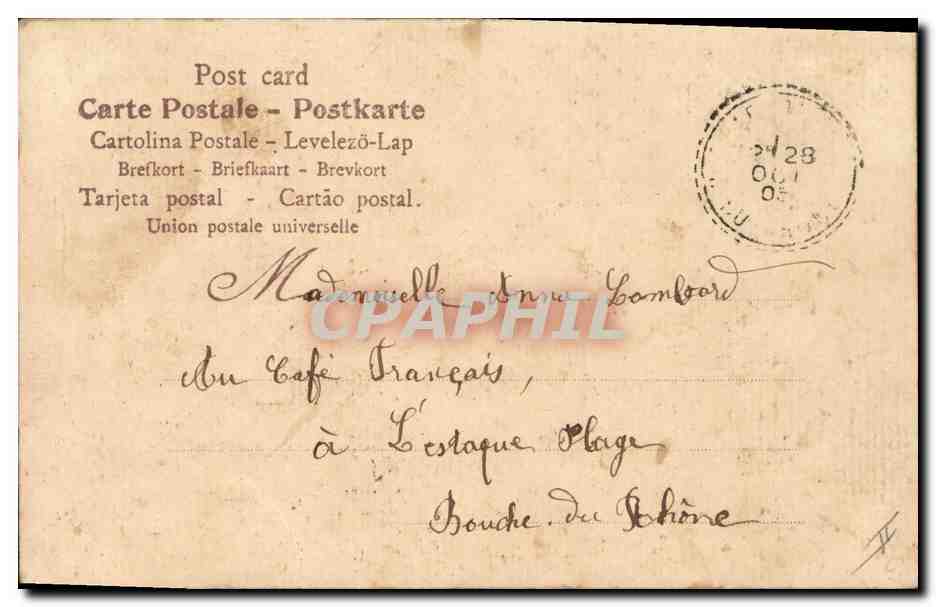 Post card
Carte Postale - Postkarte
Cartolina Postale - Levelezö-Lap
Brefkort - Briefkaart - Brevkort
Tarjeta postal - Cartão postal.
Union postale universelle
28
OCT
05
Mademoiselle Anna Lombard
CPAPHIL
Au Café Français,
à L'estaque Plage
Bouche-du Rhône
II